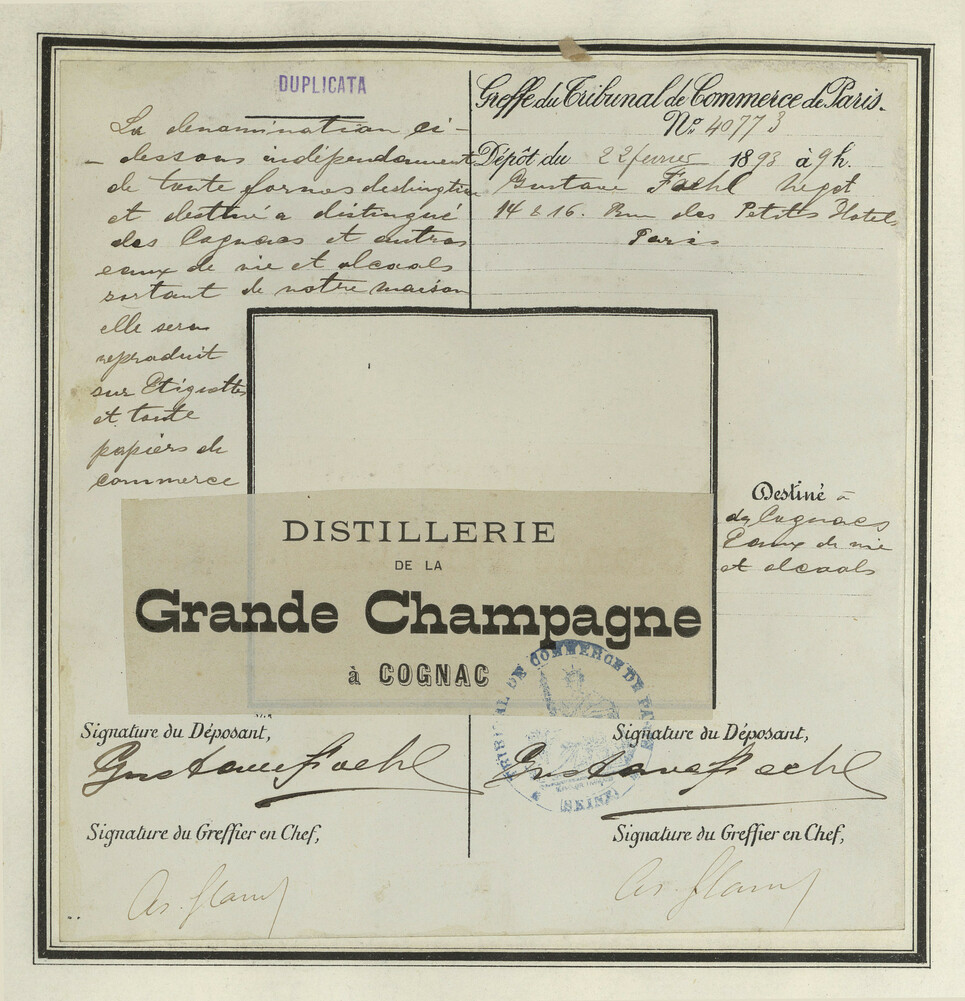 DUPLICATA
La denamination ci-
- dessous indépendament
de toute formes dedingtive
et destiné a distingué
des Cognacs et autres
eaux de vie et alcools
sortant de notre maison
elle sera
reproduit
sur Etiquettes
et toute
papiers de
commerce
Greffe du Tribunal de Commerce de Paris.
N° 40773
Dépôt du 22 fevrier 1893 à 9 h.
Gustave Foehl Negot
14 & 16. Rue des Petits Hotels
Paris
Destiné à
des Cognacs
Eaux de vie
et alcools
DISTILLERIE
DE LA
Grande Champagne
à COGNAC
TRIBUNAL DE COMMERCE DE PARIS
(SEINE)
Signature du Déposant,
Gustave Foehl
Signature du Greffier en Chef,
Signature du Déposant,
Gustave Foehl
Signature du Greffier en Chef,